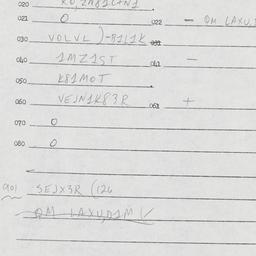 020
021 0 022 - QM LAXU,D
030 VDLVL)-81L1K 031
040 1MZ1ST 041 -
050 K81MOT
060 VEJN1K83R 061 +
070 0
080 0
901 SEJX3R (126
QM LAXU,D1M